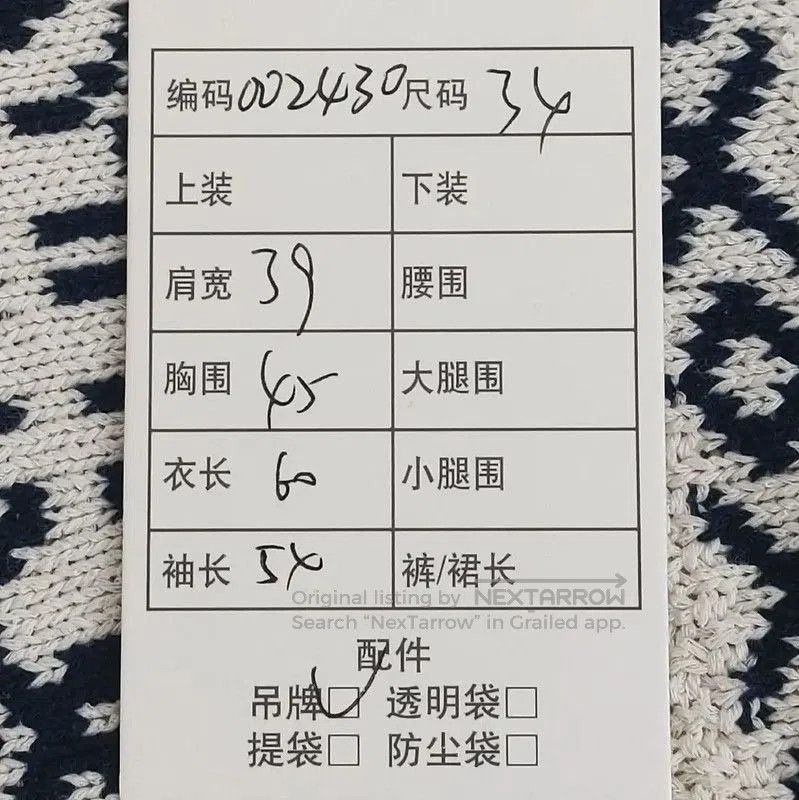 编码 002430 尺码 34
上装 下装
肩宽 39 腰围
胸围 45 大腿围
衣长 60 小腿围
袖长 54 裤/裙长
Original listing by NEXTARROW
Search “NexTarrow” in Grailed app.
配件
吊牌□ 透明袋□
提袋□ 防尘袋□